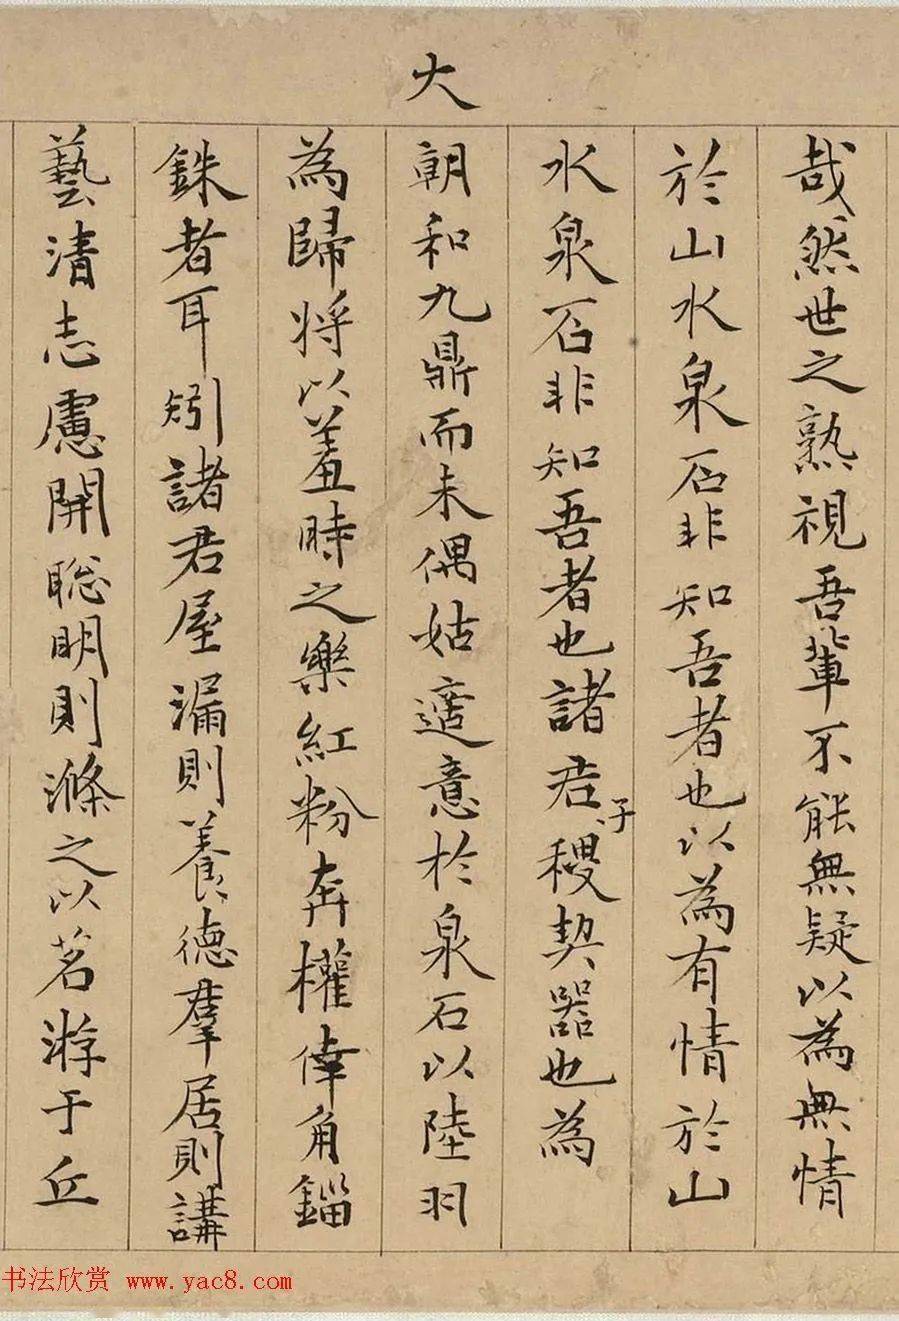 哉然世之熟視吾輩不能無疑以為無情
於山水泉石非知吾者也以為有情於山
水泉石非知吾者也諸君子稷契器也為
大
朝和九鼎而未偶姑適意於泉石以陸羽
為歸將以羞時之樂紅粉奔權倖角錙
銖者耳矧諸君屋漏則養德羣居則講
藝清志慮開聰明則滌之以茗游于丘
书法欣赏 www.yac8.com